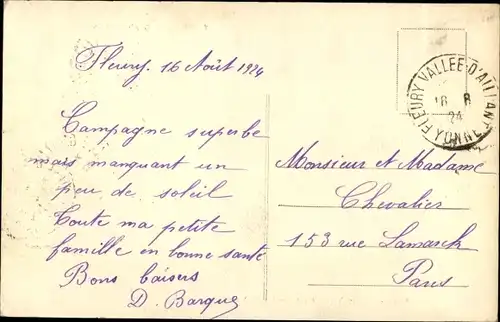 Fleury. 16 Août 1924
Campagne superbe
mais manquant un
peu de soleil
Toute ma petite
famille en bonne santé
Bons baisers
D. Barque
FLEURY VALLEE-D'AILLANT
16 8
24
YONNE
Monsieur et Madame
Chevalier
153 rue Lamarck
Paris